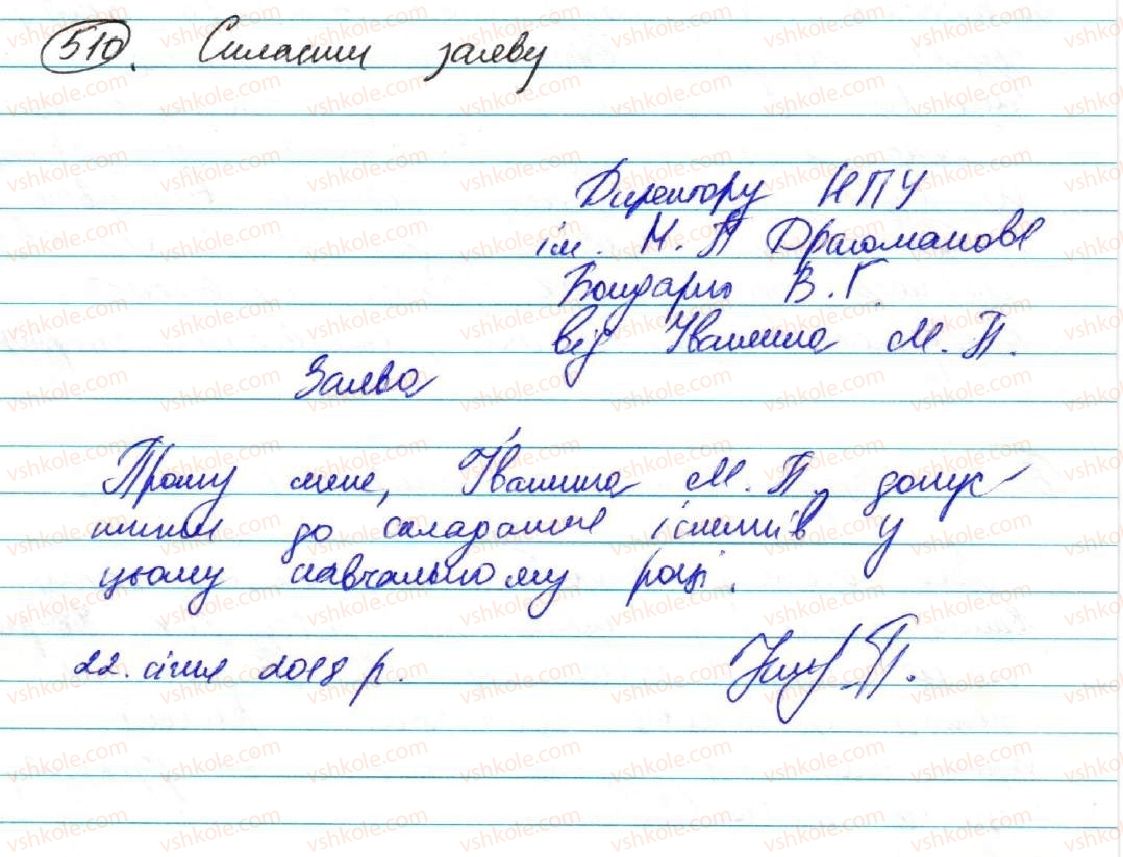 510. Скласти заяву
Директору НПУ
ім. М. П Драгоманова
Бондарю В. Г.
від Іванина М. П.
Заява
Прошу мене, Іванина М. П. допус
тити до складання іспитів у
цьому навчальному році.
22. січня 2018 р.